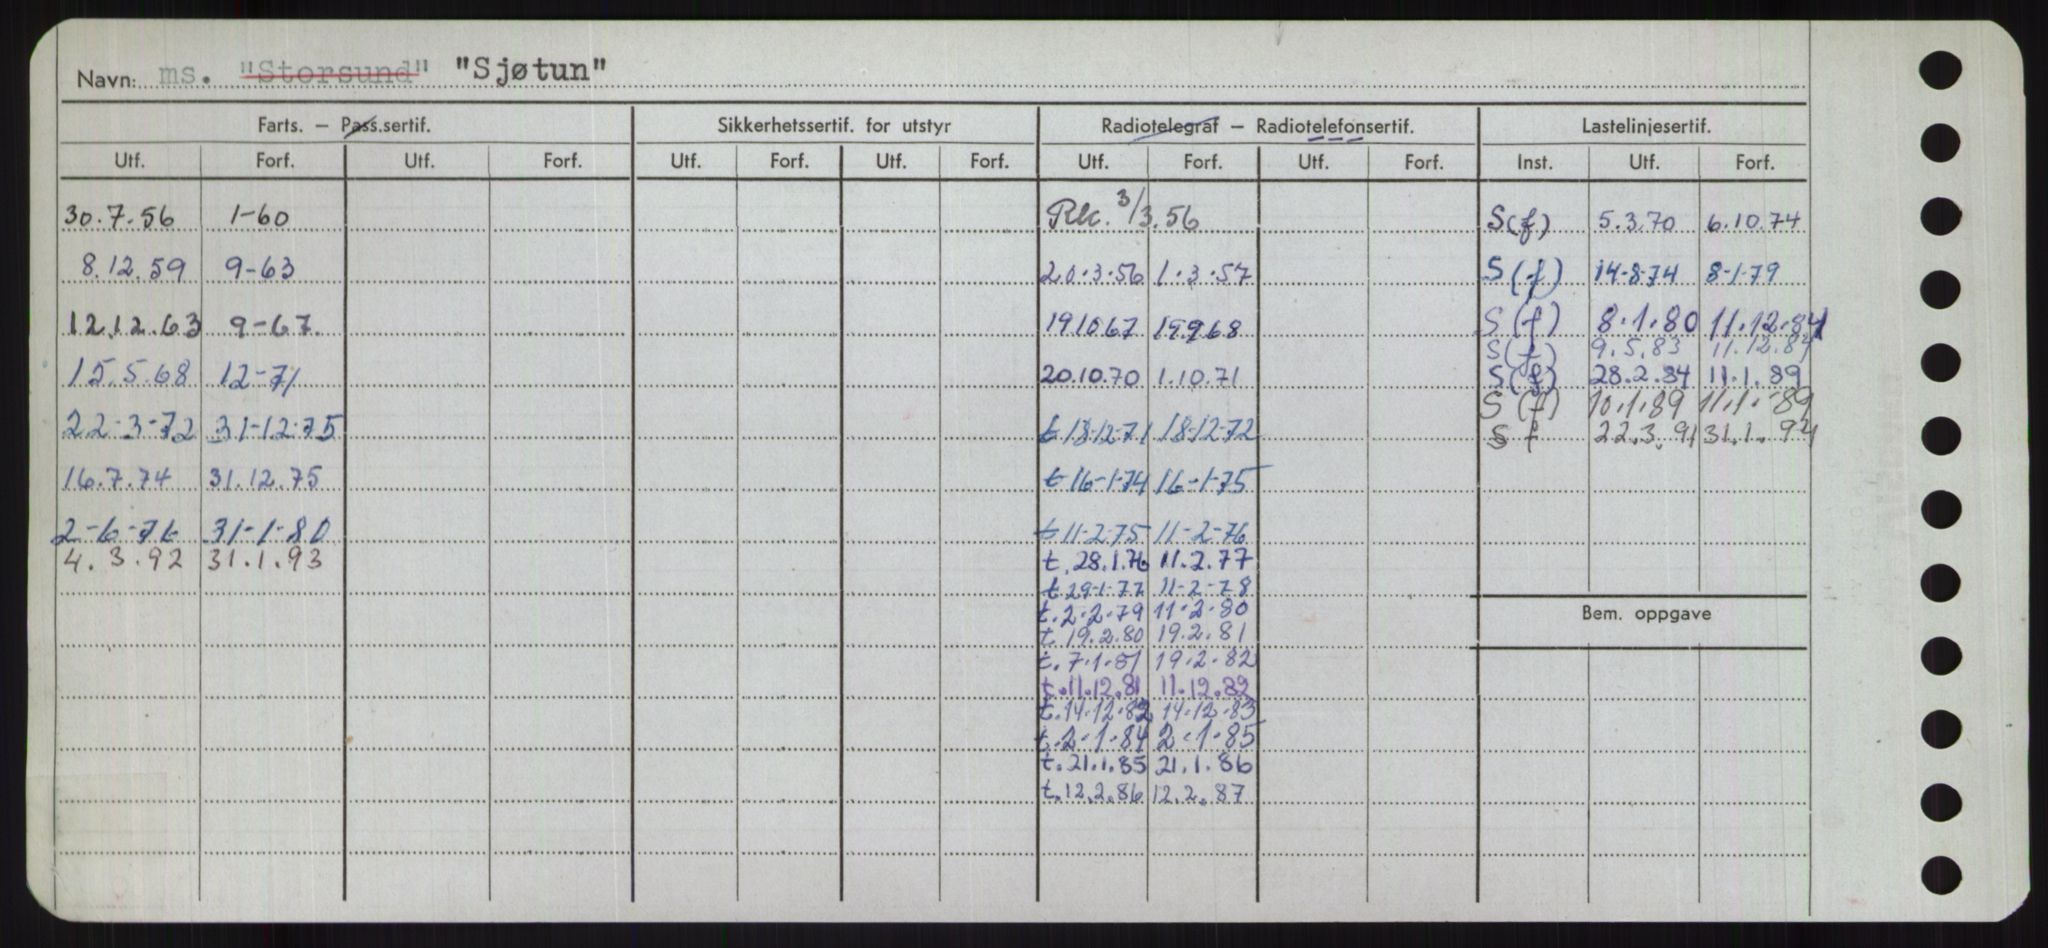 Navn: ms. "Storsund" "Sjøtun"
Farts. — Pass.sertif. Sikkerhetssertif. for utstyr Radiotelegraf — Radiotelefonsertif. Lastelinjesertif.
Utf. Forf. Utf. Forf. Utf. Forf. Utf. Forf. Utf. Forf. Utf. Forf. Inst. Utf. Forf.
30.7.56 1-60 3/3.56 S(f) 5.3.70 6.10.74
8.12.59 9-63 20.3.56 1.3.57 S(f) 14-8-74 8-1-79
12.12.63 9-67. 19.10.67 S(f) 8.1.80 11.12.84
S(f) 9.5.83 11.12.84
15.5.68 12-71 20.10.70 1.10.71 S(f) 28.2.84 11.1.89
S(f) 10.1.89 11.1.89
22-3-72 31-12-75 t 18-12-71 18-12-72 S f 22.3.91 31.1.94
16.7.74 31.12.75 t 16-1-74 16-1-75
2-6-76 31-1-80 t 11-2-75 11-2-76
4.3.92 31.1.93 t. 28.1.76 11.2.77
t. 29-1-77 11-2-78
t. 2.2.79 11.2.80 Bem. oppgave
t. 19.2.80 19.2.81
t. 7.1.81 19.2.82
t. 11.12.81 11.12.82
t. 14.12.82 14.12.83
t. 2.1.84 2.1.85
t. 21.1.85 21.1.86
t. 12.2.86 12.2.87